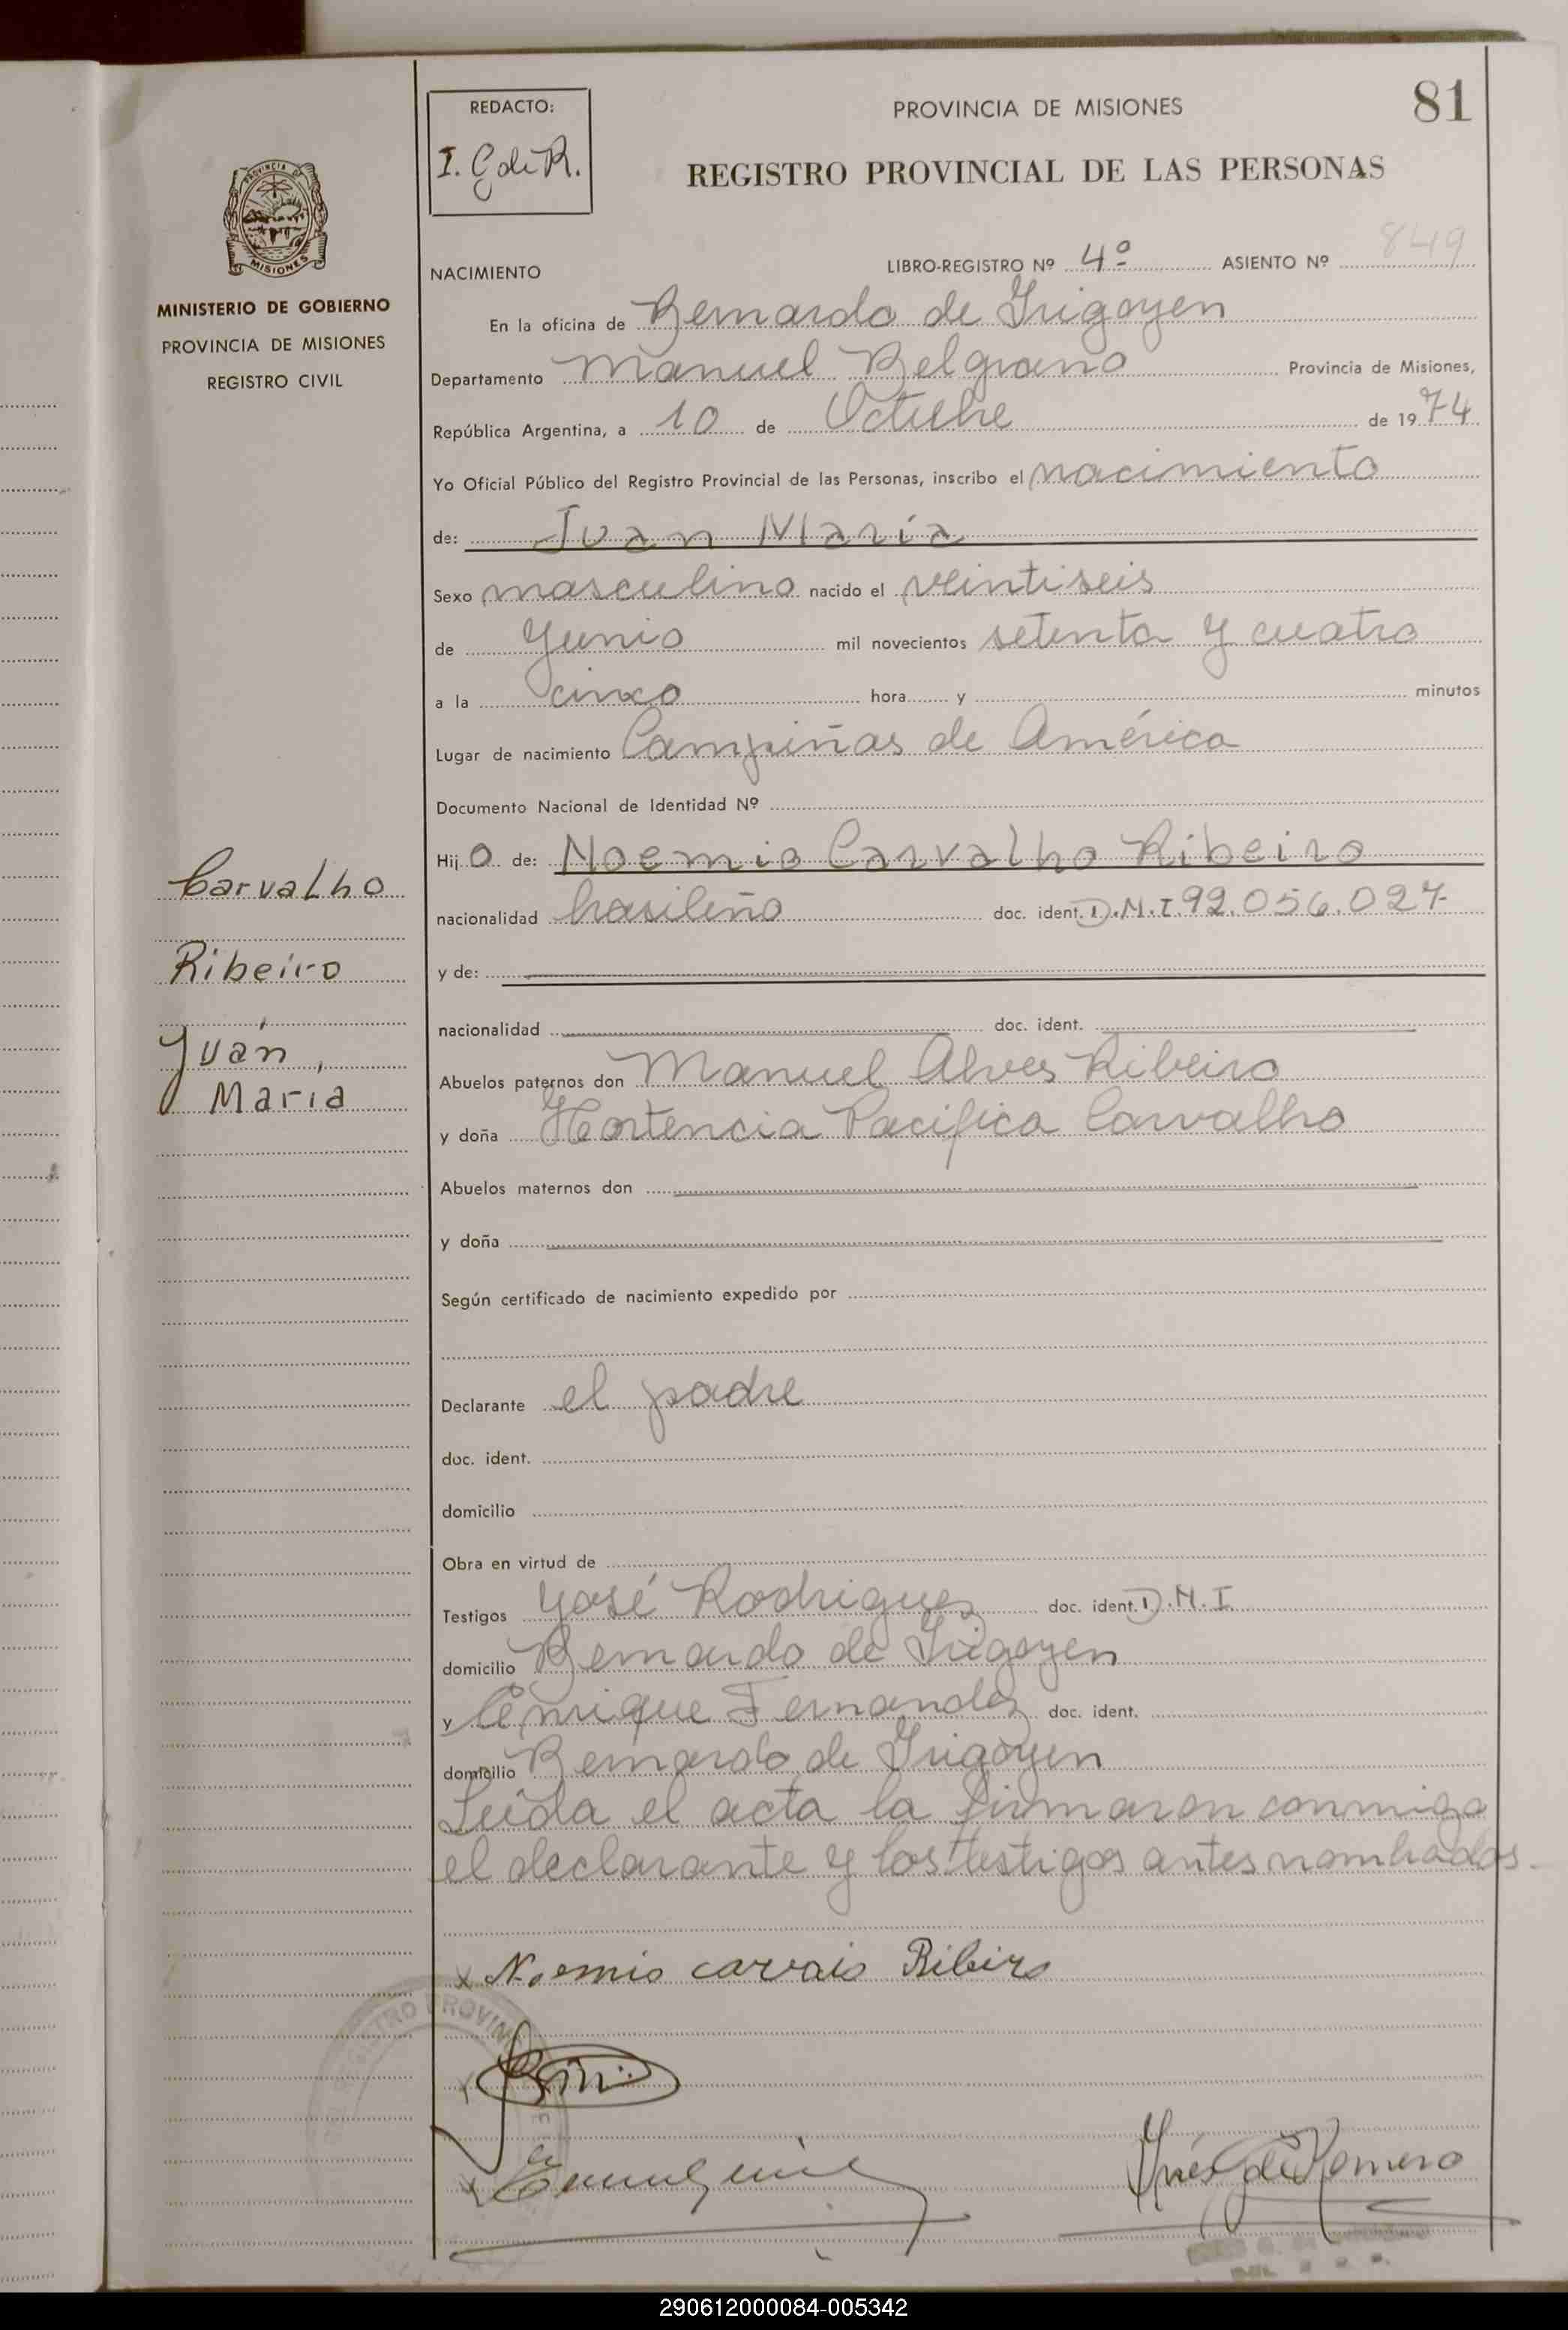 REDACTO:
I. G de R.
PROVINCIA DE MISIONES
81
REGISTRO PROVINCIAL DE LAS PERSONAS
PROVINCIA DE
MISIONES
MINISTERIO DE GOBIERNO
PROVINCIA DE MISIONES
REGISTRO CIVIL
NACIMIENTO
LIBRO-REGISTRO Nº 4º ASIENTO Nº 849
En la oficina de Bernardo de Irigoyen
Departamento Manuel Belgrano Provincia de Misiones,
República Argentina, a 10 de Octubre de 1974
Yo Oficial Público del Registro Provincial de las Personas, inscribo el nacimiento
de: Juan María
Sexo masculino nacido el veintiseis
de Junio mil novecientos setenta y cuatro
a la cinco hora y minutos
Lugar de nacimiento Campiñas de América
Documento Nacional de Identidad Nº
Hijo de: Noemio Carvalho Ribeiro
nacionalidad brasileño doc. ident. D.N.I. 92.056.027
y de:
nacionalidad doc. ident.
Abuelos paternos don Manuel Alves Ribeiro
y doña Hortencia Pacifica Carvalho
Abuelos maternos don
y doña
Según certificado de nacimiento expedido por
Declarante el padre
doc. ident.
domicilio
Obra en virtud de
Testigos José Rodriguez doc. ident. D.N.I.
domicilio Bernardo de Irigoyen
y Enrique Fernandez doc. ident.
domicilio Bernardo de Irigoyen
Leída el acta la firmaron conmigo
el declarante y los testigos antes nombrados.
Carvalho
Ribeiro
Juan
María
x Noemio carvaio Ribiro
x
x
Inés G de Romero
REGISTRO PROVIN
290612000084-005342